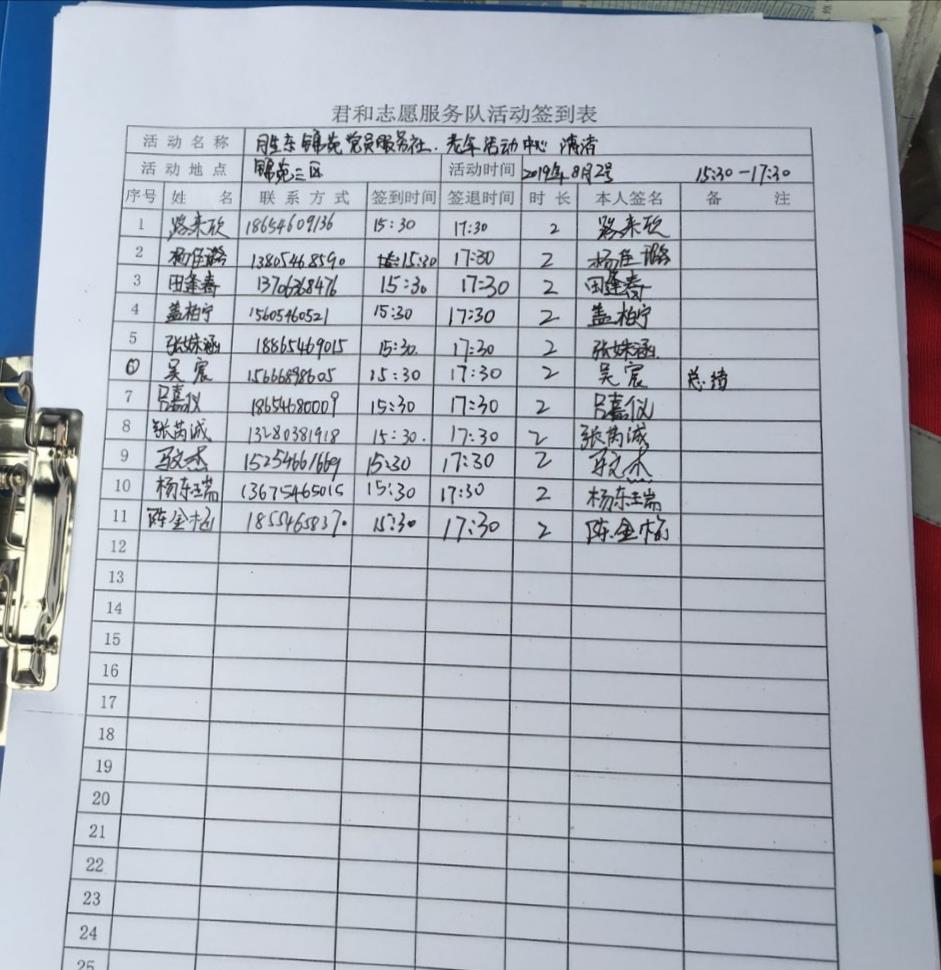 君和志愿服务队活动签到表
活动名称 胜东锦苑党员服务社、老年活动中心 清洁
活动地点 锦苑三区 活动时间 2019年8月2号 15:30-17:30
序号 姓名 联系方式 签到时间 签退时间 时长 本人签名 备注
1 路来欣 18654609136 15:30 17:30 2 路来欣
2 杨佳璐 13805468590 15:30 17:30 2 杨佳璐
3 田逢春 13706368476 15:30 17:30 2 田逢春
4 盖柏宁 15605460521 15:30 17:30 2 盖柏宁
5 张姝涵 18865469015 15:30 17:30 2 张姝涵
6 吴宸 15666898605 15:30 17:30 2 吴宸
7 吕嘉仪 18654680009 15:30 17:30 2 吕嘉仪
8 张芮诚 13280381918 15:30 17:30 2 张芮诚
9 15254661669 15:30 17:30 2
10 杨东瑞 13675465015 15:30 17:30 2 杨东瑞
11 陈金榕 1855465837 15:30 17:30 2 陈金榕
12
13
14
15
16
17
18
19
20
21
22
23
24
25